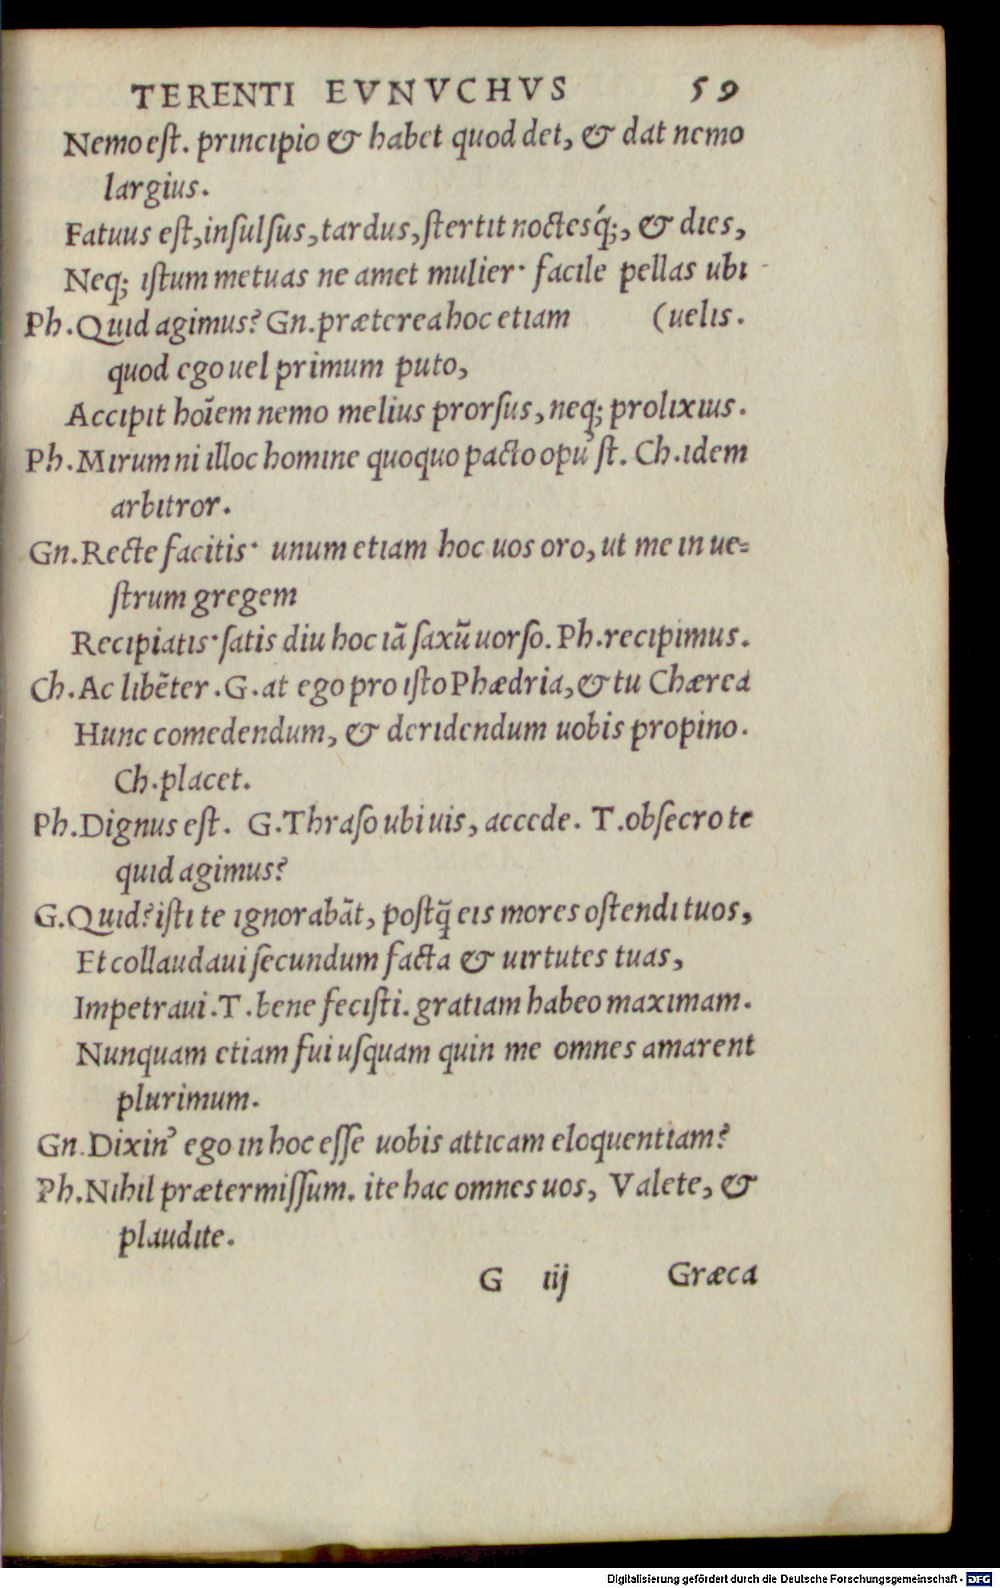 TERENTI EVNVCHVS 59
Nemo est. principio & habet quod det, & dat nemo
largius.
Fatuus est, insulsus, tardus, stertit noctesq́;, & dies,
Neq; istum metuas ne amet mulier· facile pellas ubi
Ph. Quid agimus? Gn. prætereahoc etiam (uelis.
quod ego uel primum puto,
Accipit hoīem nemo melius prorsus, neq; prolixius.
Ph. Mirum ni illoc homine quoquo pacto opu' st. Ch. idem
arbitror.
Gn. Recte facitis· unum etiam hoc uos oro, ut me in ue=
strum gregem
Recipiatis· satis diu hoc iã saxũ uorso. Ph. recipimus.
Ch. Ac libẽter. G. at ego pro isto Phædria, & tu Chærea
Hunc comedendum, & deridendum uobis propino.
Ch. placet.
Ph. Dignus est. G. Thraso ubi uis, accede. T. obsecro te
quid agimus?
G. Quid? isti te ignorabãt, postq̃ eis mores ostendi tuos,
Et collaudaui secundum facta & uirtutes tuas,
Impetraui. T. bene fecisti. gratiam habeo maximam.
Nunquam etiam fui usquam quin me omnes amarent
plurimum.
Gn. Dixin' ego in hoc esse uobis atticam eloquentiam?
Ph. Nihil prætermissum. ite hac omnes uos, Valete, &
plaudite.
G iij Græca
Digitalisierung gefördert durch die Deutsche Forschungsgemeinschaft - DFG